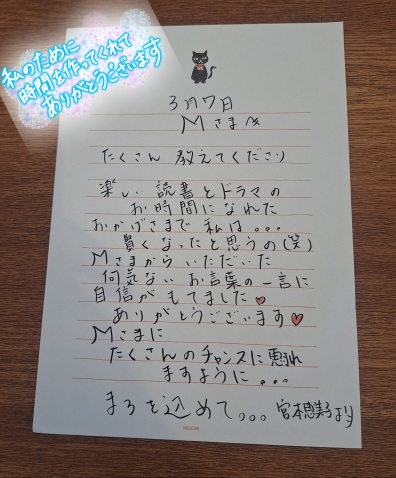 私のために
時間を作ってくれて
ありがとうございます
3月7日
Mさまへ
たくさん 教えてくださり
楽しい 読書とドラマの
お時間になれた
おかげさまで 私は。。。
賢くなったと思うの(笑)
Mさまから いただいた
何気ない お言葉の一言に
自信が もてました
ありがとうございます
Mさまに
たくさんのチャンスに 恵れ
ますように 。。。
まろを込めて。。。 宮本恵美子より
MIDORI